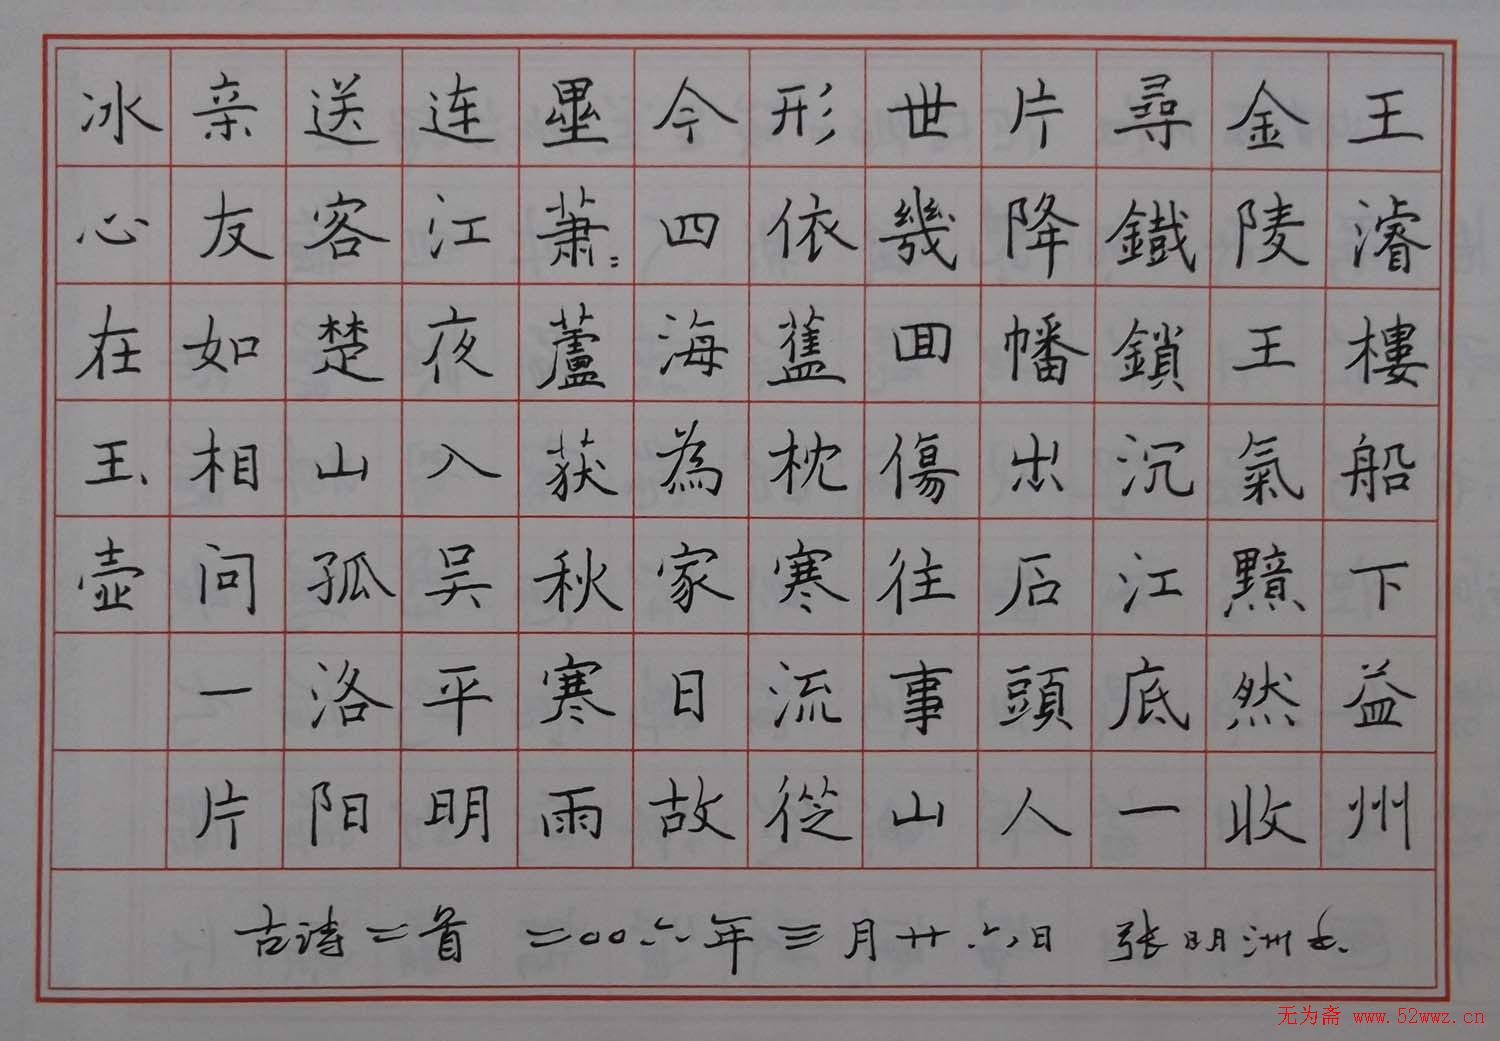 王濬樓船下益州
金陵王氣黯然收
尋鐵鎖沉江底一
片降幡出石頭人
世幾回傷往事山
形依舊枕寒流從
今四海為家日故
壘蕭:蘆荻秋寒雨
连江夜入吴平明
送客楚山孤洛阳
亲友如相问一片
冰心在玉壶
古诗二首 二〇〇六年三月廿六日 张明洲书
无为斋 www.52wwz.cn